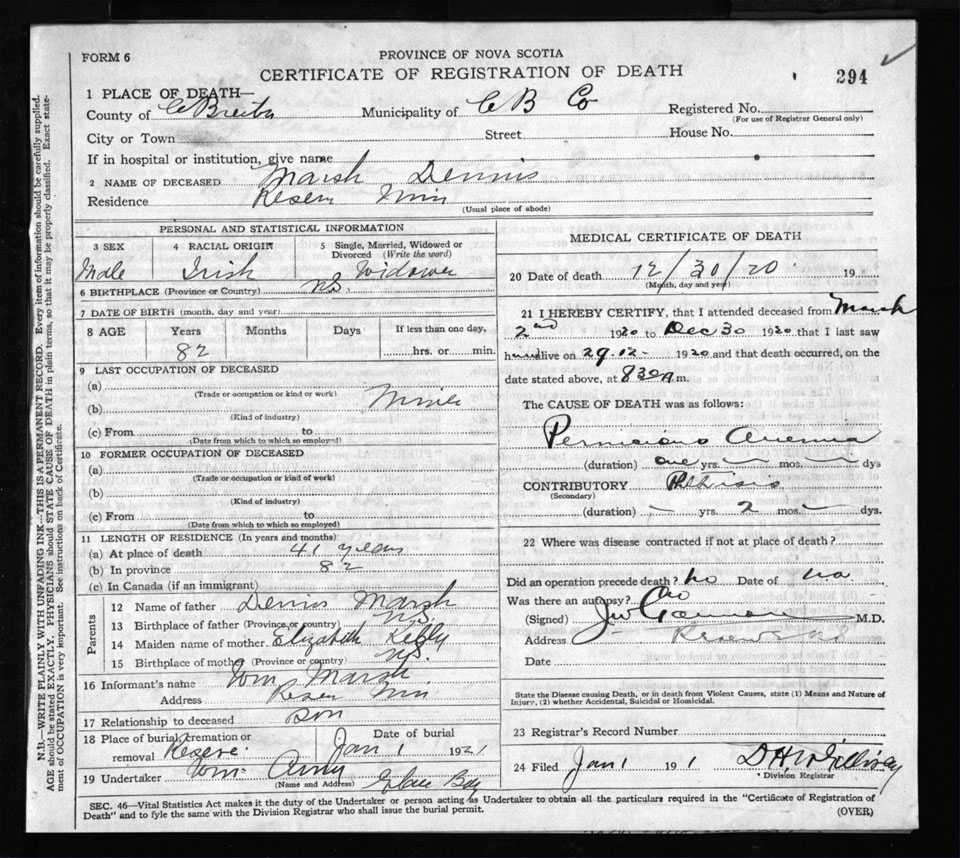 FORM 6
PROVINCE OF NOVA SCOTIA
CERTIFICATE OF REGISTRATION OF DEATH
294
1 PLACE OF DEATH—
County of C Breton Municipality of C B Co Registered No.
(For use of Registrar General only)
City or Town Street House No.
If in hospital or institution, give name
2 NAME OF DECEASED Marsh Dennis
Residence Reserve Mines
(Usual place of abode)
PERSONAL AND STATISTICAL INFORMATION
3 SEX 4 RACIAL ORIGIN 5 Single, Married, Widowed or Divorced (Write the word)
Male Irish Widower
6 BIRTHPLACE (Province or Country) N.S.
7 DATE OF BIRTH (month, day and year)
8 AGE Years Months Days If less than one day,
82 hrs. or min.
9 LAST OCCUPATION OF DECEASED
(a)
(Trade or occupation or kind or work)
(b)
(Kind of industry)
(c) From to
(Date from which to which so employed)
10 FORMER OCCUPATION OF DECEASED
(a)
(Trade or occupation or kind of work)
(b)
(Kind of industry)
(c) From to
(Date from which to which so employed)
11 LENGTH OF RESIDENCE (In years and months)
(a) At place of death 41 years
(b) In province 82
(c) In Canada (if an immigrant)
Parents
12 Name of father Dennis Marsh
13 Birthplace of father (Province or country) N.S.
14 Maiden name of mother Elizabeth Kelly
15 Birthplace of mother (Province or country) N.S.
16 Informant's name Wm Marsh
Address Reserve Mines
17 Relationship to deceased Son
18 Place of burial, cremation or removal Reserve Date of burial Jan 1 1921
19 Undertaker Wm Glace Bay
(Name and Address)
MEDICAL CERTIFICATE OF DEATH
20 Date of death 12/30/20 19
(Month, day and year)
21 I HEREBY CERTIFY, that I attended deceased from March
2nd 1920 to Dec 30 1920 that I last saw
him alive on 29-12- 1920 and that death occurred, on the
date stated above, at 8 30 A m.
The CAUSE OF DEATH was as follows:
Pernicious Anemia
(duration) one yrs. — mos. — dys
CONTRIBUTORY Phthisis
(Secondary)
(duration) — yrs. 2 mos. — dys.
22 Where was disease contracted if not at place of death?
Did an operation precede death? no Date of no
Was there an autopsy? No
(Signed) M.D.
Address Reserve NS
Date
State the Disease causing Death, or in death from Violent Causes, state (1) Means and Nature of
Injury, (2) whether Accidental, Suicidal or Homicidal.
23 Registrar's Record Number
24 Filed Jan 1 191
Division Registrar
SEC. 46—Vital Statistics Act makes it the duty of the Undertaker or person acting as Undertaker to obtain all the particulars required in the "Certificate of Registration of
Death" and to fyle the same with the Division Registrar who shall issue the burial permit.
(OVER)
N.B.—WRITE PLAINLY WITH UNFADING INK—THIS IS A PERMANENT RECORD. Every item of information should be carefully supplied.
AGE should be stated EXACTLY. PHYSICIANS should STATE CAUSE OF DEATH in plain terms, so that it may be properly classified. Exact state-
ment of OCCUPATION is very important. See instructions on back of Certificate.